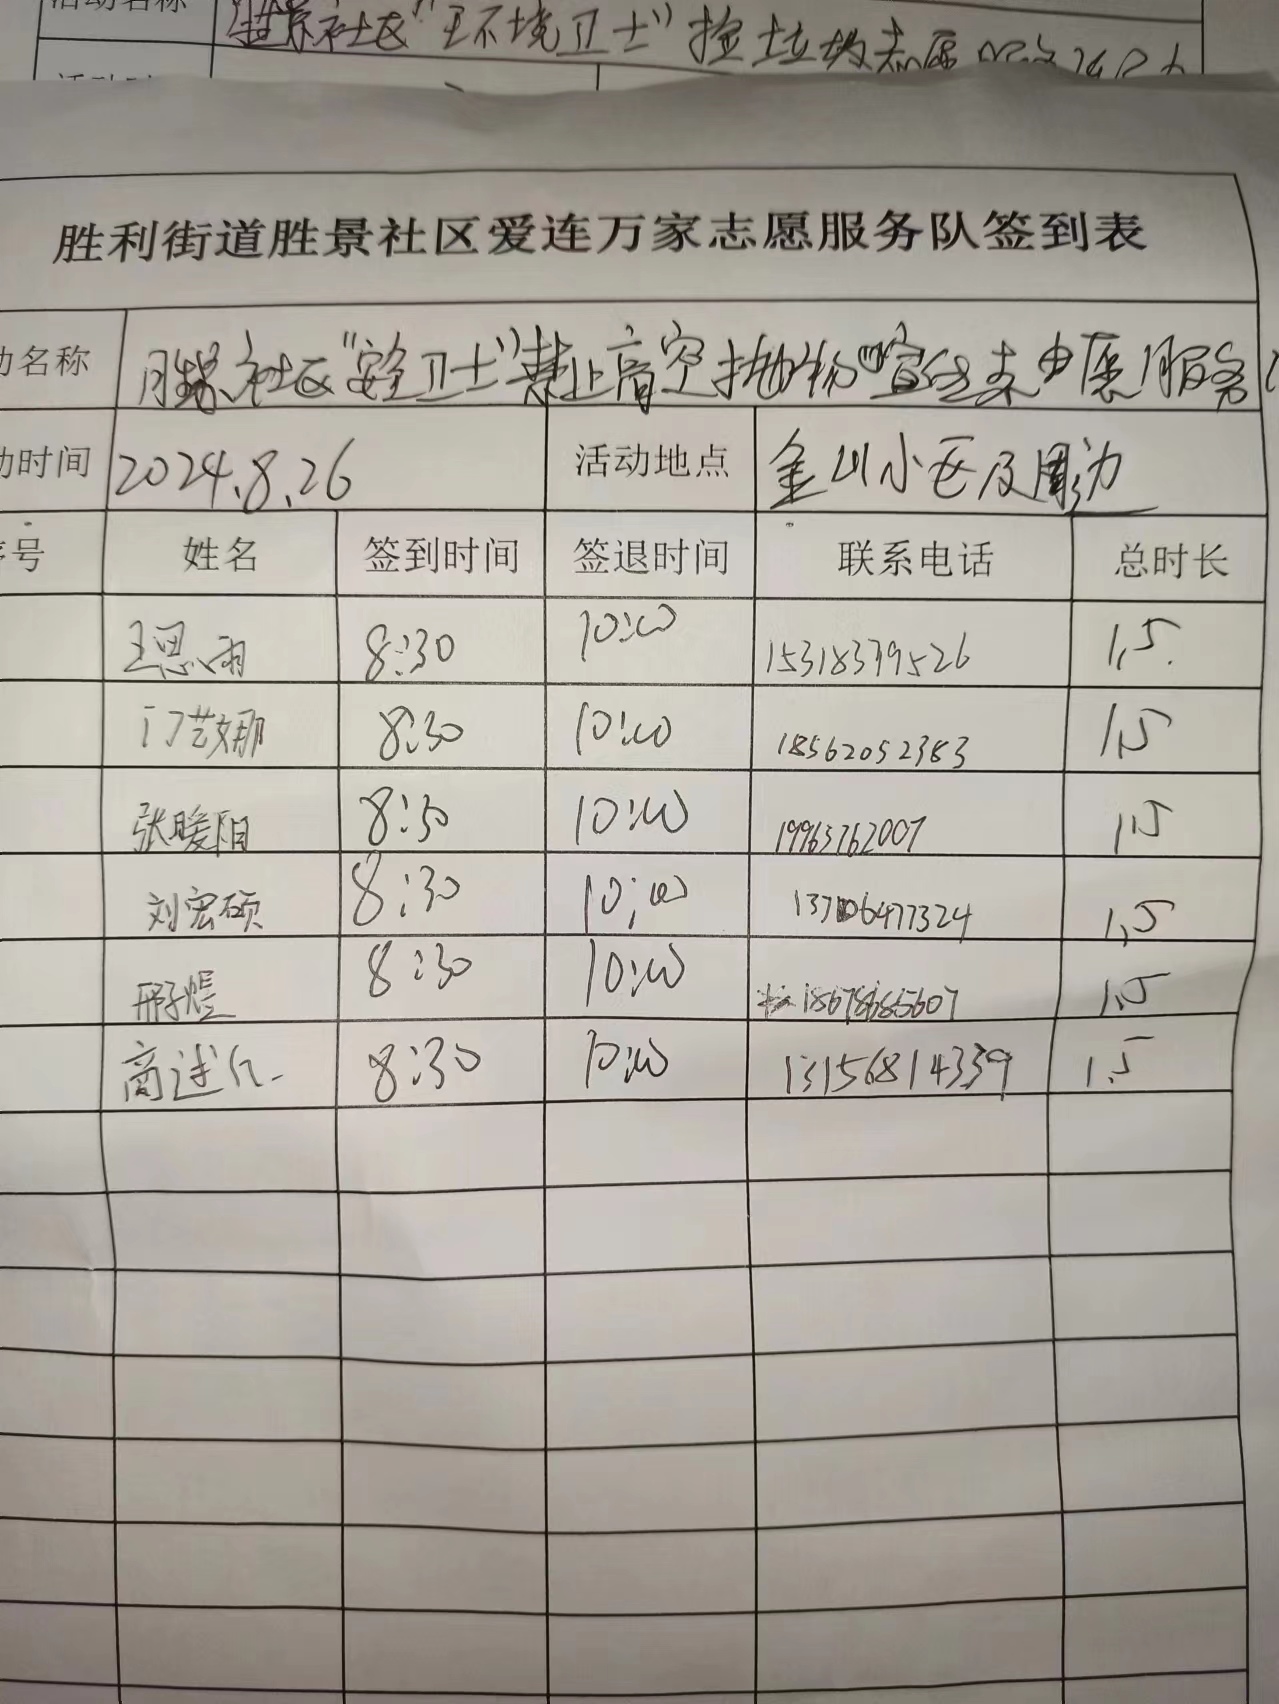 胜景社区"环境卫士"捡垃圾志愿
胜利街道胜景社区爱连万家志愿服务队签到表
动名称 胜景社区"安全卫士"禁止高空抛物"宣传志愿服务
动时间 2024.8.26 活动地点 金山小区及周边
序号 姓名 签到时间 签退时间 联系电话 总时长
王思雨 8:30 10:00 15318379526 1.5
门艺娜 8:30 10:00 18562052383 1.5
张暖阳 8:30 10:00 19963762007 1.5
刘宏硕 8:30 10:00 13706477324 1.5
邢子煜 8:30 10:00 18678685607 1.5
商述仁 8:30 10:00 13156814339 1.5